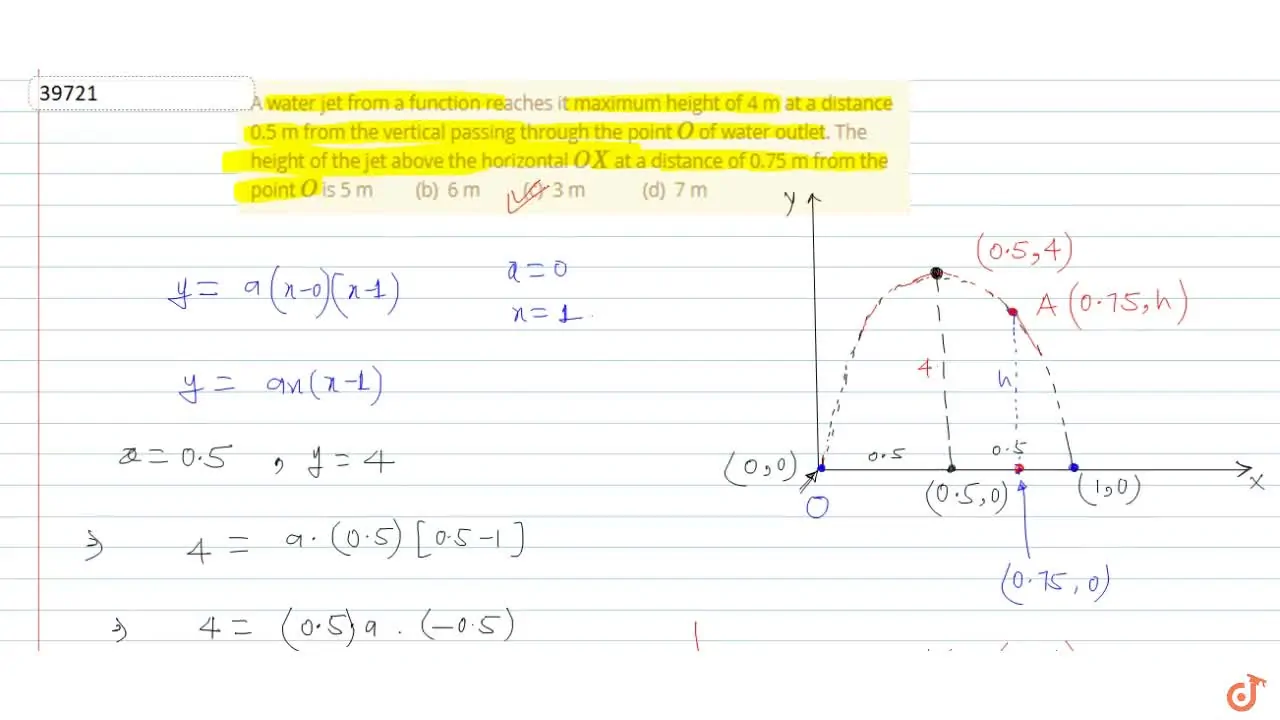 39721
A water jet from a function reaches it maximum height of 4 m at a distance
0.5 m from the vertical passing through the point O of water outlet. The
height of the jet above the horizontal OX at a distance of 0.75 m from the
point O is 5 m (b) 6 m (c) 3 m (d) 7 m
y = a(x-0)(x-1)
x = 0
x = 1
y = ax(x-1)
x = 0.5 , y = 4
⇒ 4 = a.(0.5)[0.5-1]
⇒ 4 = (0.5)a . (-0.5)
y
(0.5,4)
A (0.75,h)
4
h
0.5
0.5
(0,0)
O
(0.5,0)
(1,0)
X
(0.75,0)